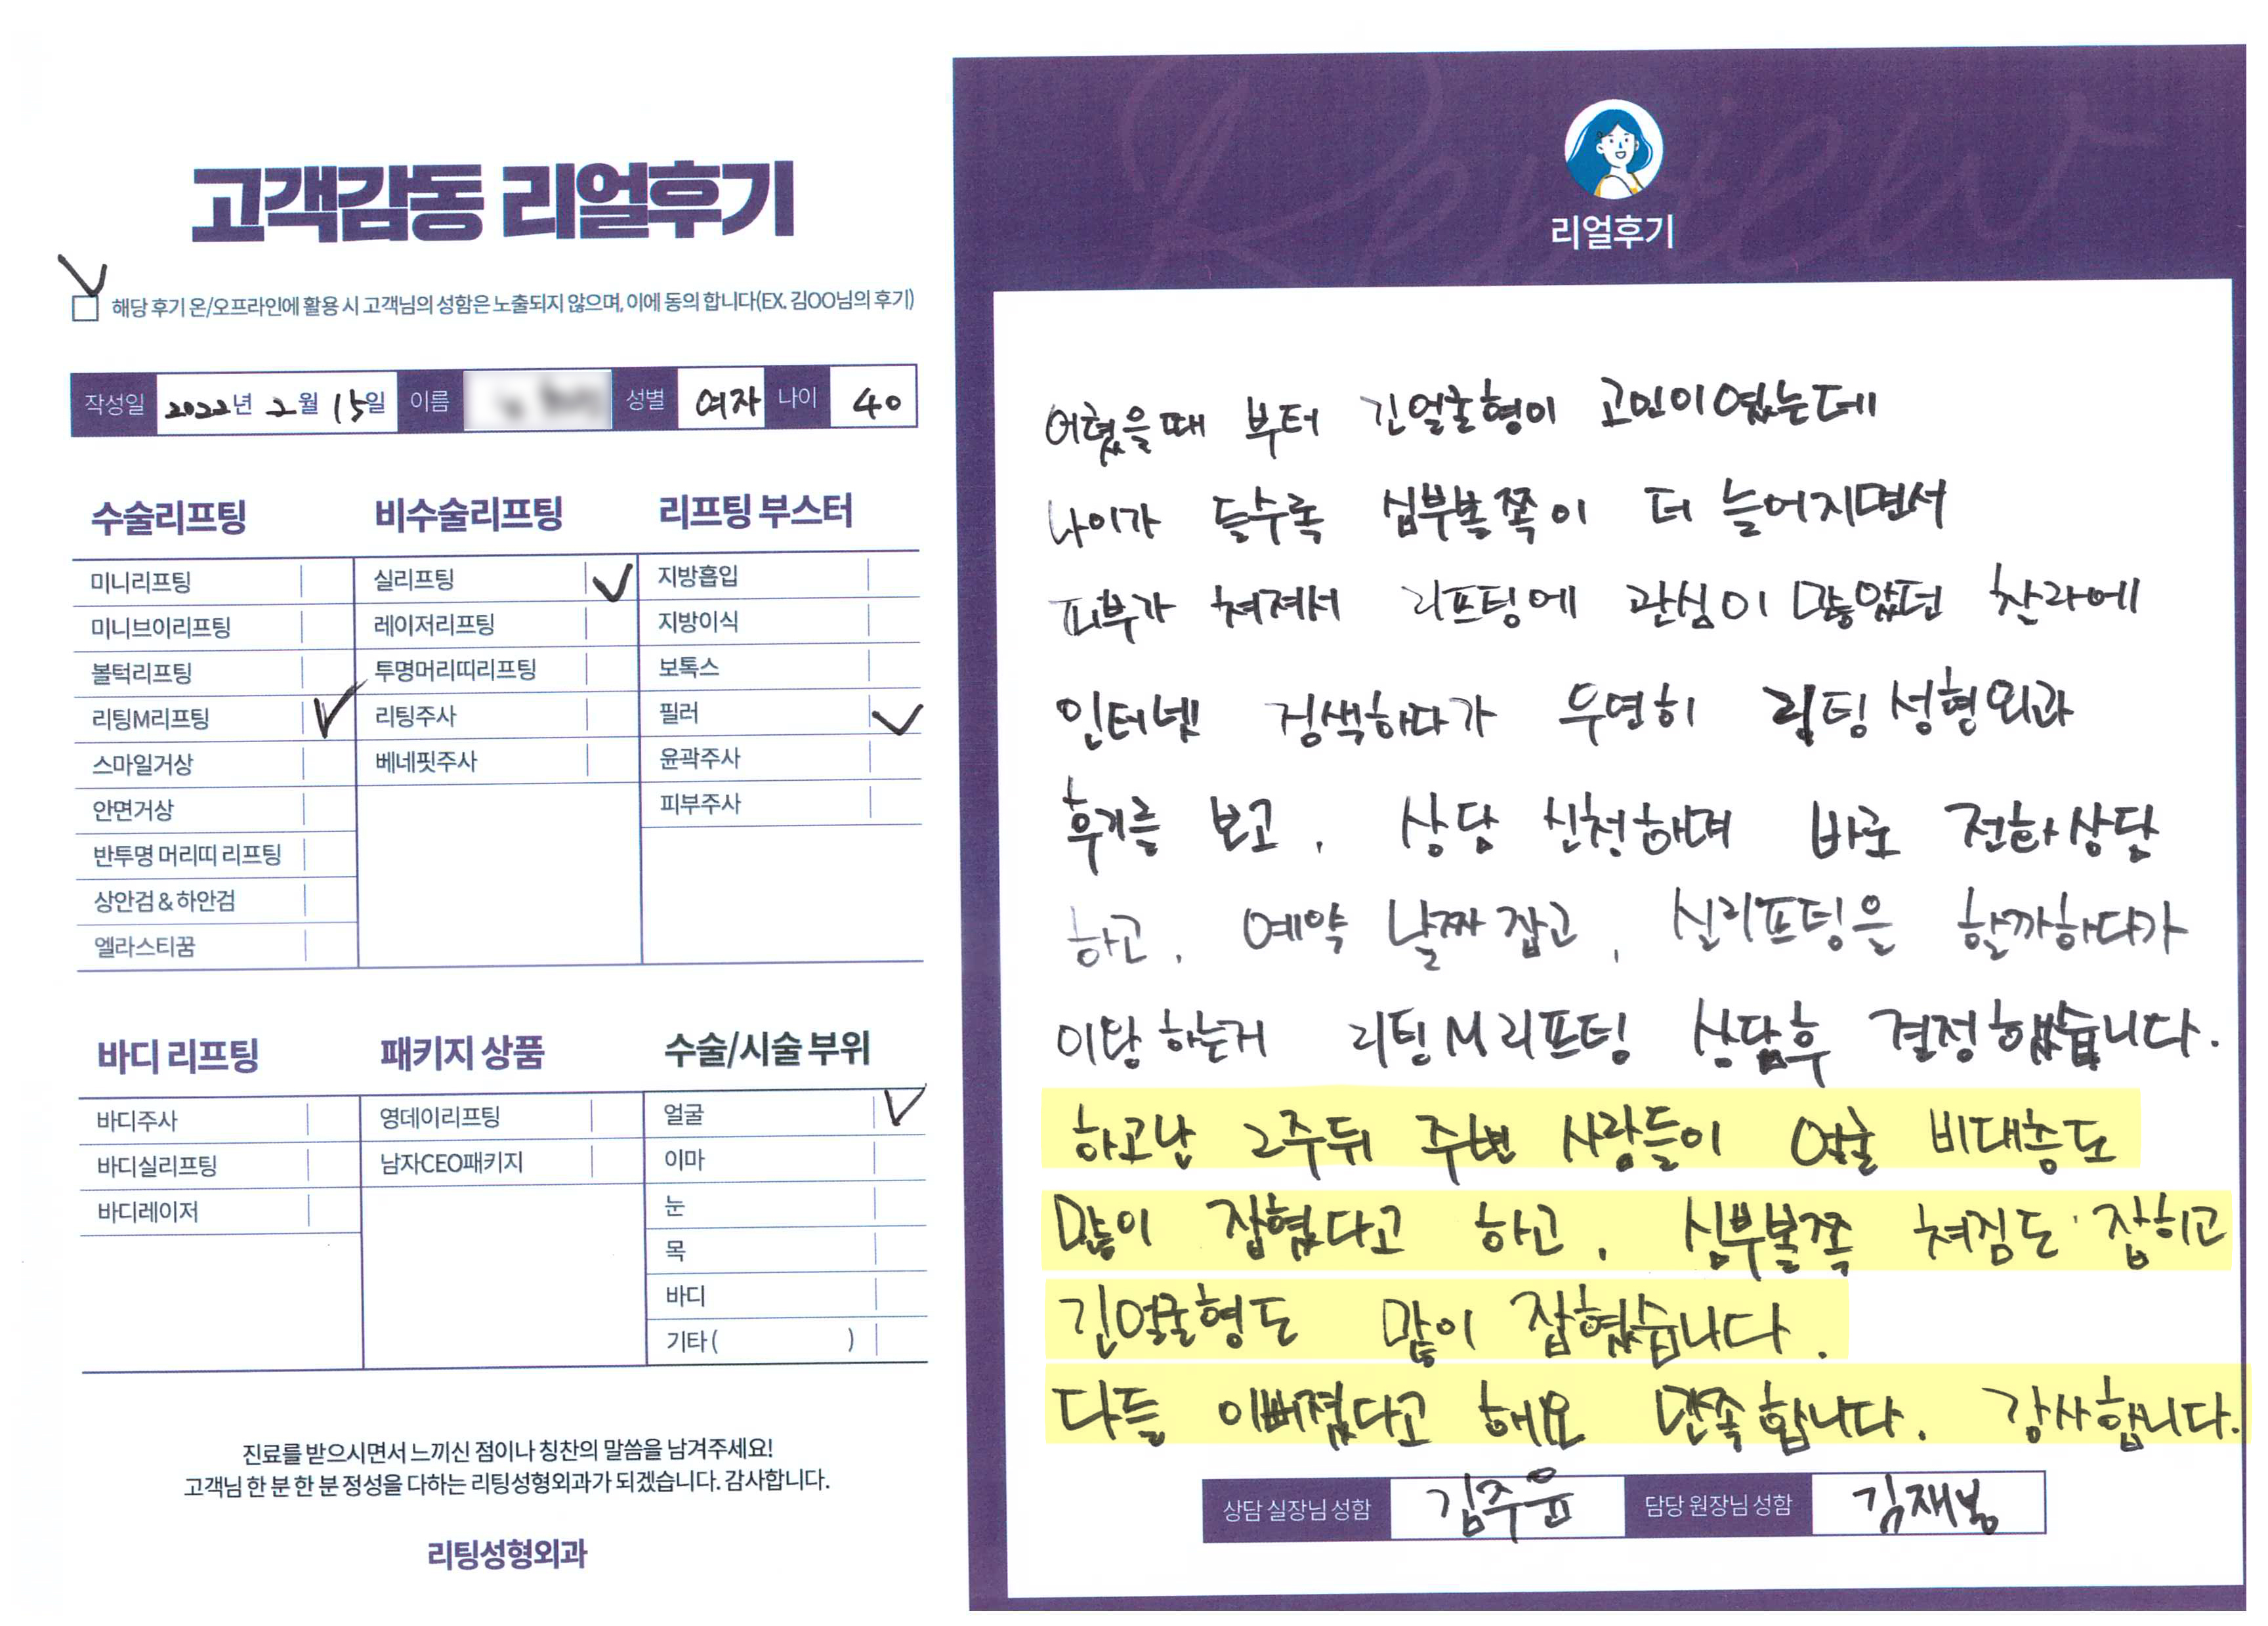 고객감동 리얼후기
해당 후기 온/오프라인에 활용 시 고객님의 성함은 노출되지 않으며, 이에 동의 합니다(EX. 김OO님의 후기)
작성일 2022년 2월 15일 이름 성별 여자 나이 40
수술리프팅
미니리프팅
미니브이리프팅
볼턱리프팅
리팅M리프팅
스마일거상
안면거상
반투명 머리띠 리프팅
상안검 & 하안검
엘라스티꿈
비수술리프팅
실리프팅
레이저리프팅
투명머리띠리프팅
리팅주사
베네핏주사
리프팅 부스터
지방흡입
지방이식
보톡스
필러
윤곽주사
피부주사
바디 리프팅
바디주사
바디실리프팅
바디레이저
패키지 상품
영데이리프팅
남자CEO패키지
수술/시술 부위
얼굴
이마
눈
목
바디
기타 ( )
진료를 받으시면서 느끼신 점이나 칭찬의 말씀을 남겨주세요!
고객님 한 분 한 분 정성을 다하는 리팅성형외과가 되겠습니다. 감사합니다.
리팅성형외과
Review
리얼후기
어렸을때 부터 긴얼굴형이 고민이였는데
나이가 들수록 심부볼쪽이 더 늘어지면서
피부가 쳐져서 리프팅에 관심이 많았던 찰라에
인터넷 검색하다가 우연히 리팅성형외과
후기를 보고, 상담 신청하며 바로 전화상담
하고, 예약 날짜 잡고, 실리프팅을 할까하다가
이왕 하는거 리팅M리프팅 상담후 결정했습니다.
하고난 2주뒤 주변 사람들이 얼굴 비대층도
많이 잡혔다고 하고, 심부볼쪽 쳐짐도 잡히고
긴얼굴형도 많이 잡혔습니다.
다들 이뻐졌다고 해요 만족합니다. 감사합니다.
상담 실장님 성함 김주윤 담당 원장님 성함 김재봉